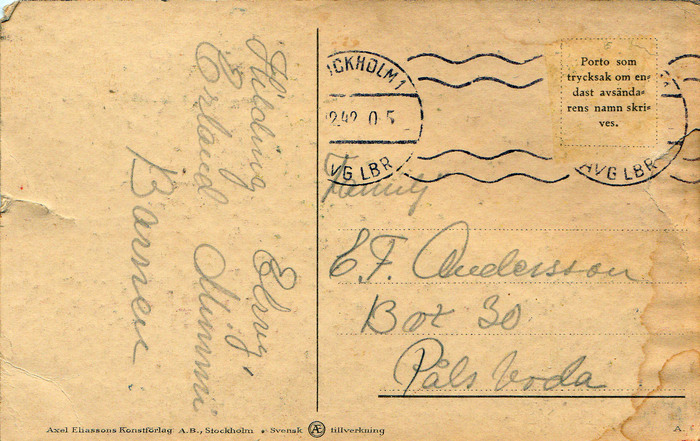 Hilding Elsy
Erland Mimmi
Barnen
ICKHOLM 1
2.42 0.5
AVG LBR
Porto som
trycksak om en-
dast avsända-
rens namn skri-
ves.
AVG LBR
Familj
E.F. Andersson
Box 30
Pålsboda
Axel Eliassons Konstförlag A.B., Stockholm • Svensk Æ tillverkning
A.